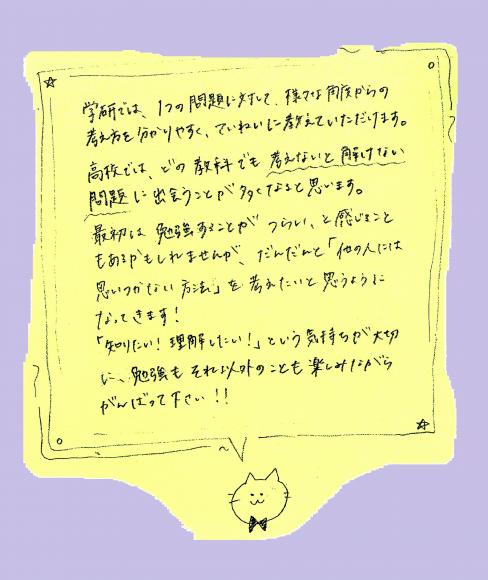 学研では、1つの問題に対して、様々な角度からの
考え方を分かりやすく、ていねいに教えていただけます。
高校では、どの教科でも考えないと解けない
問題に出会うことが多くなると思います。
最初は勉強することがつらい、と感じること
もあるかもしれませんが、だんだんと「他の人には
思いつかない方法」を考えたいと思うように
なってきます!
「知りたい!理解したい!」という気持ちが大切
に、勉強もそれ以外のことも楽しみながら
がんばって下さい!!